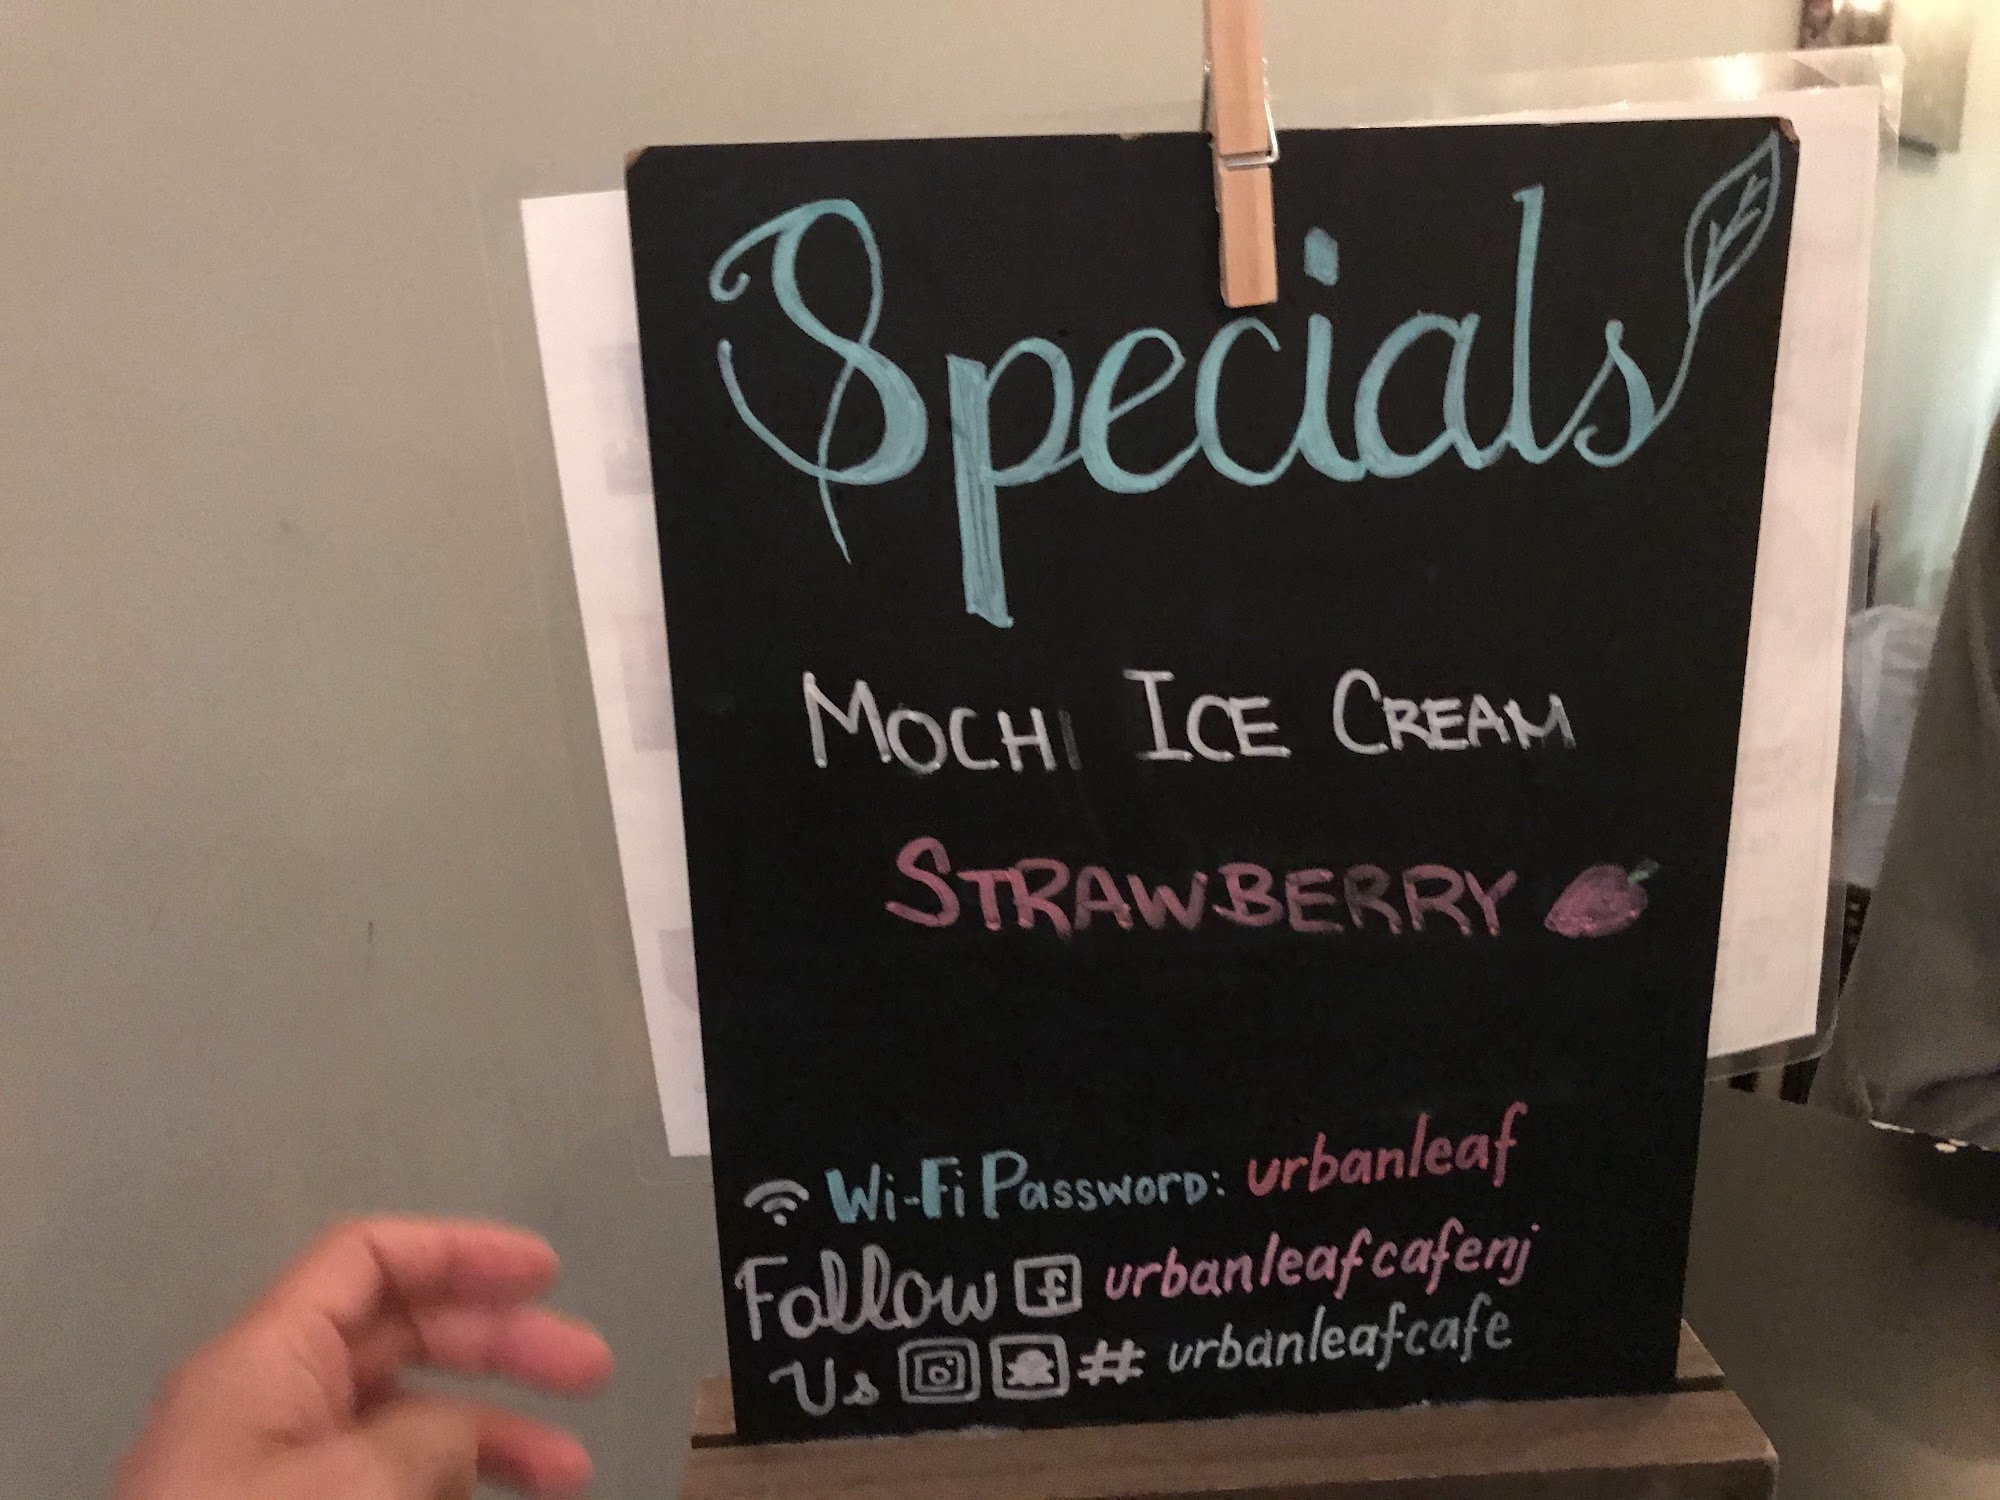 Specials
MOCHI ICE CREAM
STRAWBERRY
Wi-Fi PASSWORD: urbanleaf
Follow f urbanleafcafenj
Us # urbanleafcafe